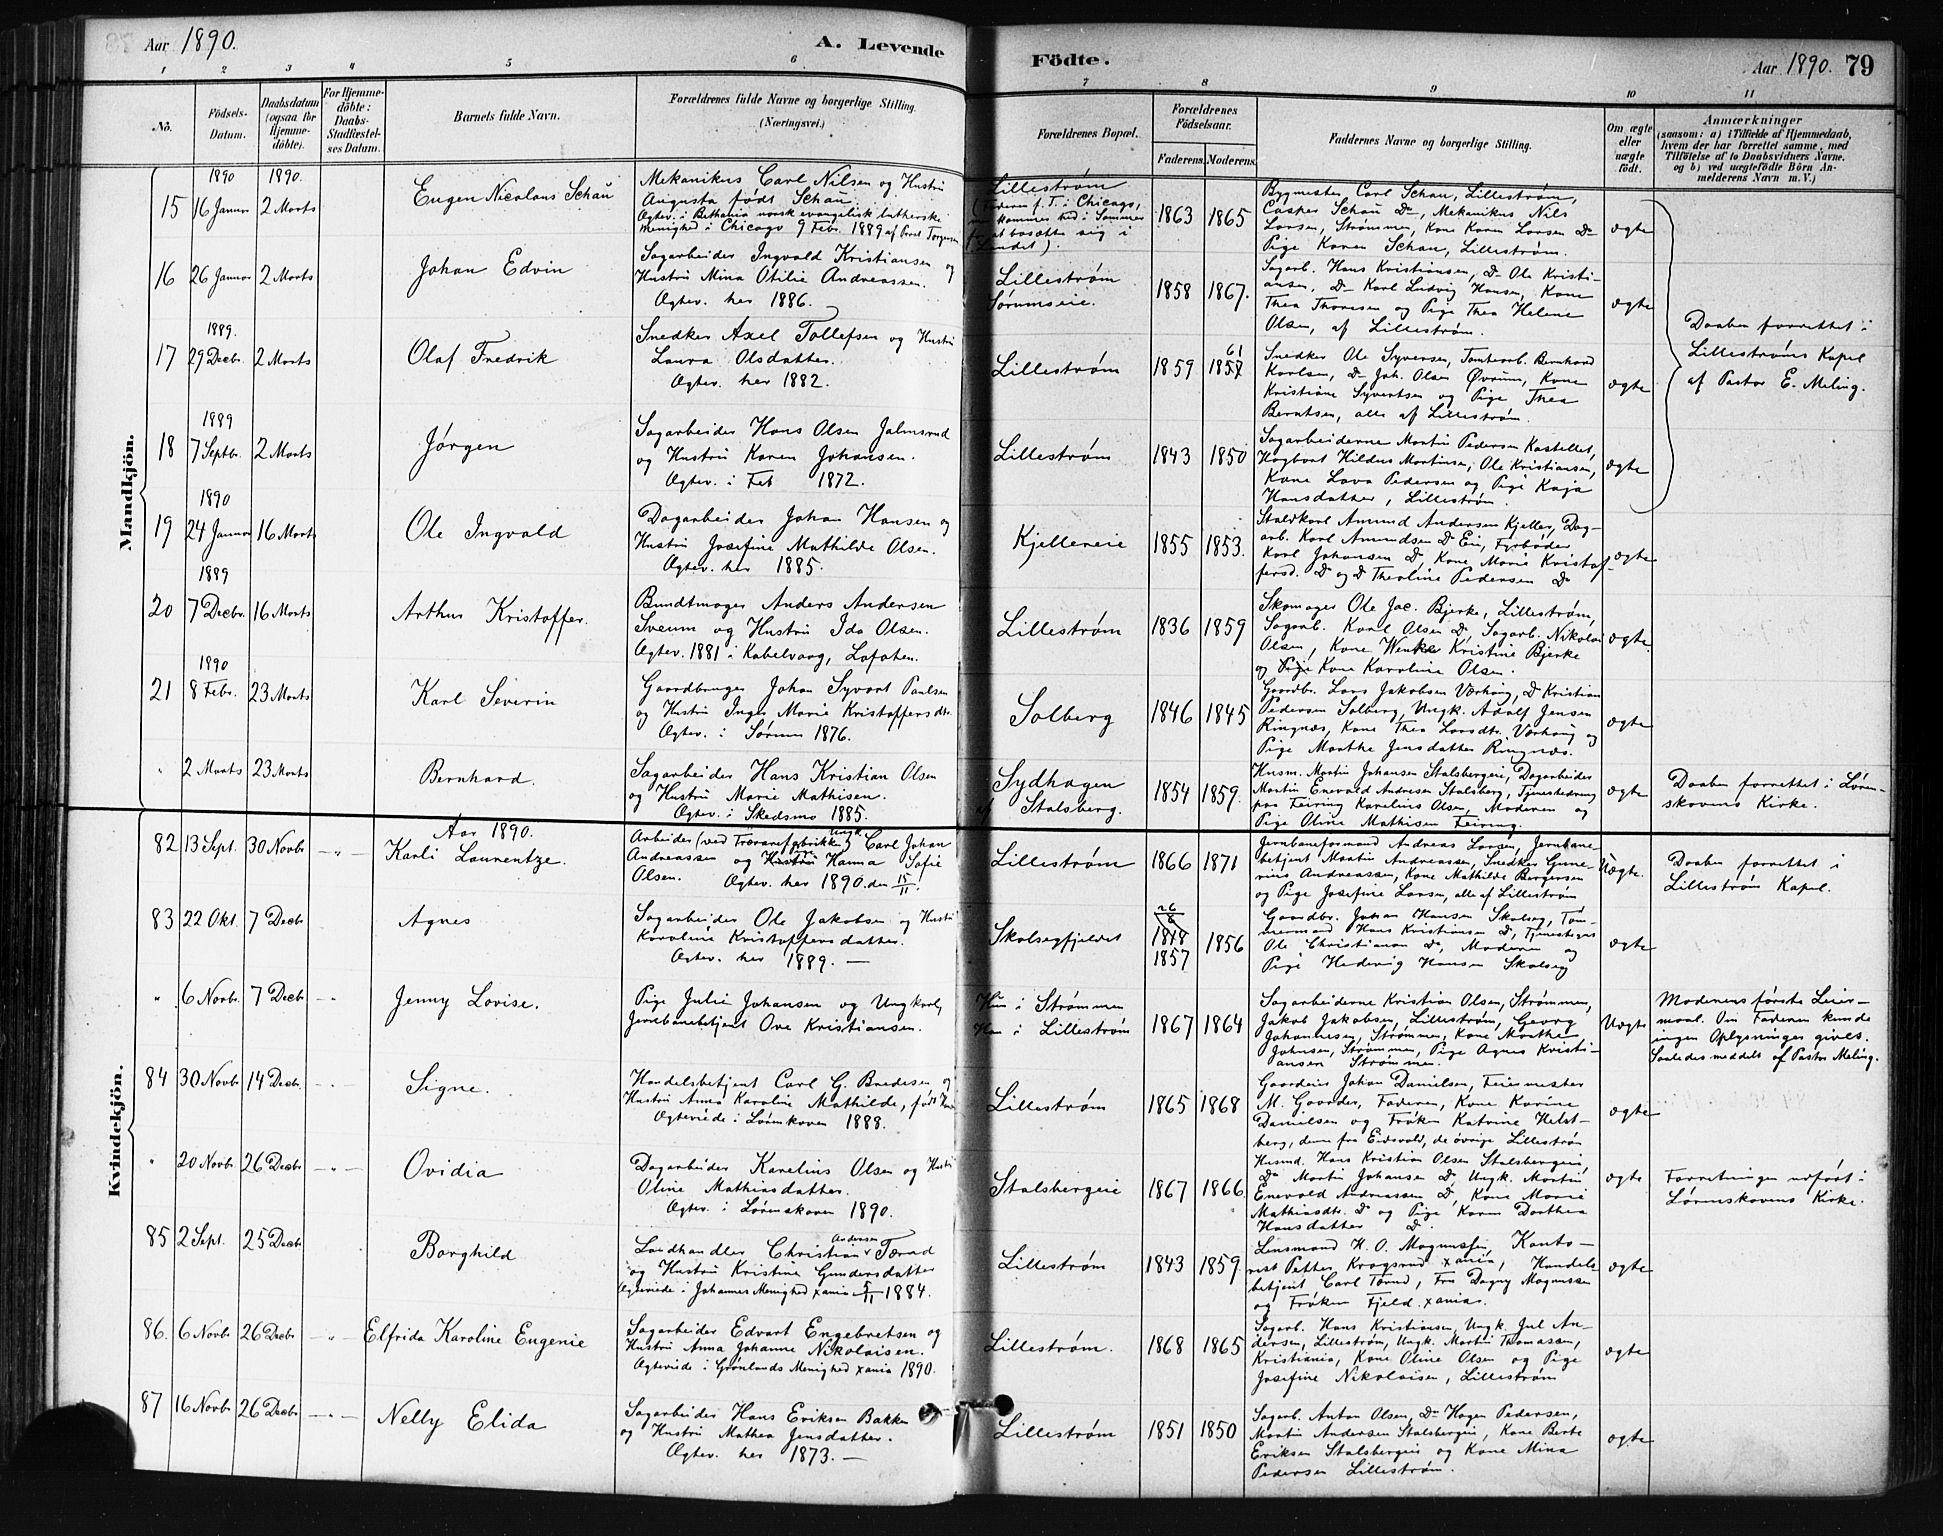 Aar 1890.
A. Levende
Födte.
Aar 1890. 79
1 2 3 4 5 6 7 8 9 10 11
No.
Födsels-
Datum.
Daabsdatum
(ogsaa for
Hjemme-
döbte).
For Hjemme-
döbte:
Daabs-
Stadfæstel-
ses Datum.
Barnets fulde Navn.
Forældrenes fulde Navne og borgerlige Stilling.
(Næringsvei.)
Forældrenes Bopæl.
Forældrenes
Födselsaar.
Faderens. Moderens.
Faddernes Navne og borgerlige Stilling.
Om ægte
eller
uægte
födt.
Anmærkninger
(saasom: a) i Tilfælde af Hjemmedaab,
hvem der har forrettet samme, med
Tilföielse af to Daabsvidners Navne,
og b) ved uægtefödte Börn An-
melderens Navn m. V.)
Mandkjön.
1890 1890.
15 16 Januar 2 Marts
Eugen Nicolaus Schau
Mekanikus Carl Nilsen og Hustru
Augusta født Schau.
Ægtev. i Bethania norsk evangelisk lutherske
menighed i Chicago 9 Febr. 1889 af Prest Torgersen
Lillestrøm
(Faderen f. T. i Chicago,
kommer hid i Sommer
at bosætte sig i
Landet).
1863 1865
Bygmester Carl Schau, Lillestrøm,
Casper Schau Do, Mekanikus Nils
Larsen, Strømmen, Kone Karen Larsen Do
Pige Karen Schau, Lillestrøm.
ægte
16 26 Januar 2 Marts
Johan Edvin
Sagarbeider Ingvald Kristiansen og
Hustru Mina Otilie Andreassen.
Ægtev. her 1886.
Lillestrøm
Sørumseie.
1858 1867.
Sagarb. Hans Kristiansen, Do Ole Kristi-
ansen, Do Karl Ludvig Hansen, Kone
Thea Thoresen og Pige Thea Helene
Olsen, af Lillestrøm.
ægte
1889.
17 29 Decbr. 2 Marts
Olaf Fredrik
Snedker Axel Tollefsen og Hustru
Laura Olsdatter.
Ægtev. her 1882.
Lillestrøm
1859 1857 61
Snedker Ole Syversen, Tomtearb. Bernhard
Karlsen, Do Joh. Olsen Øvrum, Kone
Kristiane Syvertsen og Pige Thea
Berntsen, alle af Lillestrøm.
ægte
Daaben forrettet i
Lillestrøms Kapel
af Pastor E. Meling.
1889
18 7 Septbr. 2 Marts
Jørgen
Sagarbeider Hans Olsen Jalmsrud
og Hustru Karen Johansen.
Ægtev. i Fet 1872.
Lillestrøm
1843 1850
Sagarbeiderne Martin Pedersen Kastellet,
Hagbart Hildus Martinsen, Ole Kristiansen,
Kone Lava Pedersen og Pige Kaja
Hansdatter, Lillestrøm.
ægte
1890
19 24 Januar 16 Marts
Ole Ingvald
Dagarbeider Johan Hansen og
Hustru Josefine Mathilde Olsen.
Ægtev. her 1885.
Kjellereie
1855 1853.
Staldkarl Amund Andersen Kjeller, Dag-
arb. Karl Amundsen Do Eie, Fyrbøder
Karl Johansen Do, Kone Marie Kristof-
fersd. Do og Do Theoline Pedersen Do
ægte
1889
20 7 Decbr. 16 Marts
Arthur Kristoffer.
Bundtmager Anders Andersen
Sveum og Hustru Ida Olsen.
Ægtev. 1881 i Kabelvaag, Lofoten.
Lillestrøm
1836 1859
Skomager Ole Jac. Bjerke, Lillestrøm,
Sagarb. Karl Olsen Do, Sagarb. Nikolai
Olsen, Kone Wenke Kristine Bjerke
og Pige Kone Karoline Olsen.
ægte.
1890
21 8 Febr. 23 Marts
Karl Severin
Gaardbruger Johan Syvart Paulsen
og Hustru Inger Marie Kristoffersdtr.
Ægtev. i Sørum 1876.
Solberg
1846 1845
Gaardbr. Lars Jakobsen Værhaug, Do Kristian
Pedersen Solberg, Ungk. Adolf Jensen
Ringnæs, Kone Thea Larsdtr. Værhaug og
Pige Marthe Jensdatter Ringnæs.
ægte
" 2 Marts 23 Marts
Bernhard.
Sagarbeider Hans Kristian Olsen
og Hustru Marie Mathisen.
Ægtev. i Skedsmo 1885.
Sydhagen
af Stalsberg.
1854 1859.
Husm. Martin Johansen Stalsbergeie, Dagarbeider
Martin Enevald Andresen Stalsberg, Tjenestedreng
paa Feiring Karelius Olsen, Moderen og
Pige Oline Mathisen Feiring.
ægte
Daaben forrettet i Løren-
skovens Kirke.
Kvindekjön.
Aar 1890.
82 13 Sept. 30 Novbr. — " —
Karli Laurentze.
Arbeider (ved Trævarefabrikken) Ungk. Carl Johan
Andreassen og Hustru Hanna Sofie
Olsen. Ægtev. her 1890. den 15/11.
Lillestrøm
1866 1871
Jernbaneformand Andreas Larsen, Jernbane-
betjent Martin Andreassen, Snedker Gune-
rius Andreassen, Kone Mathilde Borgersen
og Pige Josefine Larsen, alle af Lillestrøm
Uægte.
Daaben forrettet i
Lillestrøm Kapel.
83 22 Okt. 7 Decbr
Agnes
Sagarbeider Ole Jakobsen og Hustru
Karoline Kristoffersdatter.
Ægtev. her 1889. —
Skolsegfjeldet
26/6
1818
1857 1856
Gaardbr. Johan Hansen Skolseg, Tøm-
mermand Hans Kristiansen Do, Tjenestegut
Ole Christianson Do, Moderen og
Pige Hedevig Hansen Skolseg
ægte
" 6 Novbr. 7 Decbr — "
Jenny Lovise.
Pige Julie Johansen og Ungkarl,
Jernbanebetjent Ove Kristiansen.
Hun i Strømmen
Han i Lillestrøm
1867 1864
Sagarbeiderne Kristian Olsen, Strømmen,
Jakob Jakobsen, Lillestrøm, Georg
Johannesen, Strømmen, Kone Marthe
Johnsen, Strømmen, Pige Agnes Kristi-
ansen Strømmen.
Uægte
Moderens første Leier-
maal. Om Faderen kunde
ingen Oplysninger gives.
Saaledes meddelt af Pastor Meling.
84 30 Novbr 14 Decbr.
Signe.
Handelsbetjent Carl G. Bredesen og
Hustru Anna Karoline Mathilde, født
Ægteviede i Lørenskoven 1888.
Lillestrøm
1865 1868
Gaardeier Johan Danielsen, Feiermester
M. Gaarder, Faderen, Kone Karine
Danielsen og Frøken Katrine Helst-
berg, denne fra Eidsvold, de øvrige Lillestrøm
ægte
" 20 Novbr. 26 Decbr — " —
Ovidia
Dagarbeider Karelius Olsen og Hustru
Oline Mathiasdatter.
Ægtev. i Lørenskoven 1890.
Stalsbergeie
1867 1866
Husmd. Hans Kristian Olsen Stalsbergeie,
Do Martin Johansen Do, Ungk. Martin
Enevald Andreassen Do, Kone Marie
Mathiasdtr. Do og Pige Karen Dorthea
Hansdatter Do.
ægte
Forretningen udført i
Lørenskovens Kirke.
85 2 Sept. 25 Decbr
Borghild
Landhandler Christian Andersen Tærud
og Hustru Kristine Gundersdatter
Ægteviede i Johannes Menighed Xania 5/11 1884.
Lillestrøm
1843 1859
Lensmand H. O. Magnussen, Konto-
rist Petter Krogsrud Xania, Handels-
betjent Carl Tærud, Fru Dagny Magnussen
og Frøken Fjeld. Xania.
ægte
86. 6 Novbr 26 Decbr — " —
Elfrida Karoline Eugenie
Sagarbeider Edvart Engebretsen og
Hustru Anna Johanne Nikolaisen.
Ægteviede i Grønlands Menighed Xania 1890.
Lillestrøm.
1868 1865
Sagarb. Hans Kristiansen, Ungk. Jul An-
dersen, Lillestrøm, Ungk. Martin Thomassen,
Kristiania, Kone Oline Olsen og Pige
Josefine Nikolaisen, Lillestrøm
ægte
87 16 Novbr 26 Decbr — " —
Nelly Elida
Sagarbeider Hans Eriksen Bakken
og Hustru Mathea Jensdatter.
Ægtev. her 1873. —
Lillestrøm
1851 1850
Sagarb. Anton Olsen, Do Hagen Pedersen,
Martin Andersen Stalsbergeie, Kone Berte
Eriksen Stalsbergeie og Kone Mina
Pedersen Lillestrøm.
ægte